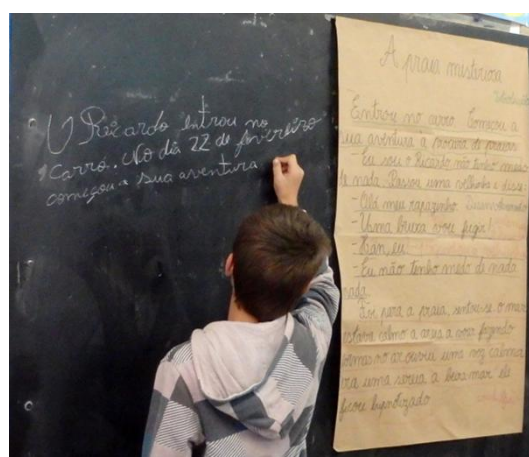 O Ricardo entrou no
carro. No dia 22 de fevereiro
começou a sua aventura
A praia misteriosa
Entrou no carro. Começou a
sua aventura a procura de praias
-Eu sou o Ricardo não tenho medo
de nada. Passou uma velhinha e disse
-Olá meu rapazinho.
-Uma bruxa vou fugir!
-Han, eu!
-Eu não tenho medo de nada
nada.
Foi para a praia, sentou-se o mar
estava calmo a areia a voar fazendo
ondas no ar ouviu uma voz calma
era uma sereia a beira mar ele
ficou hipnotizado